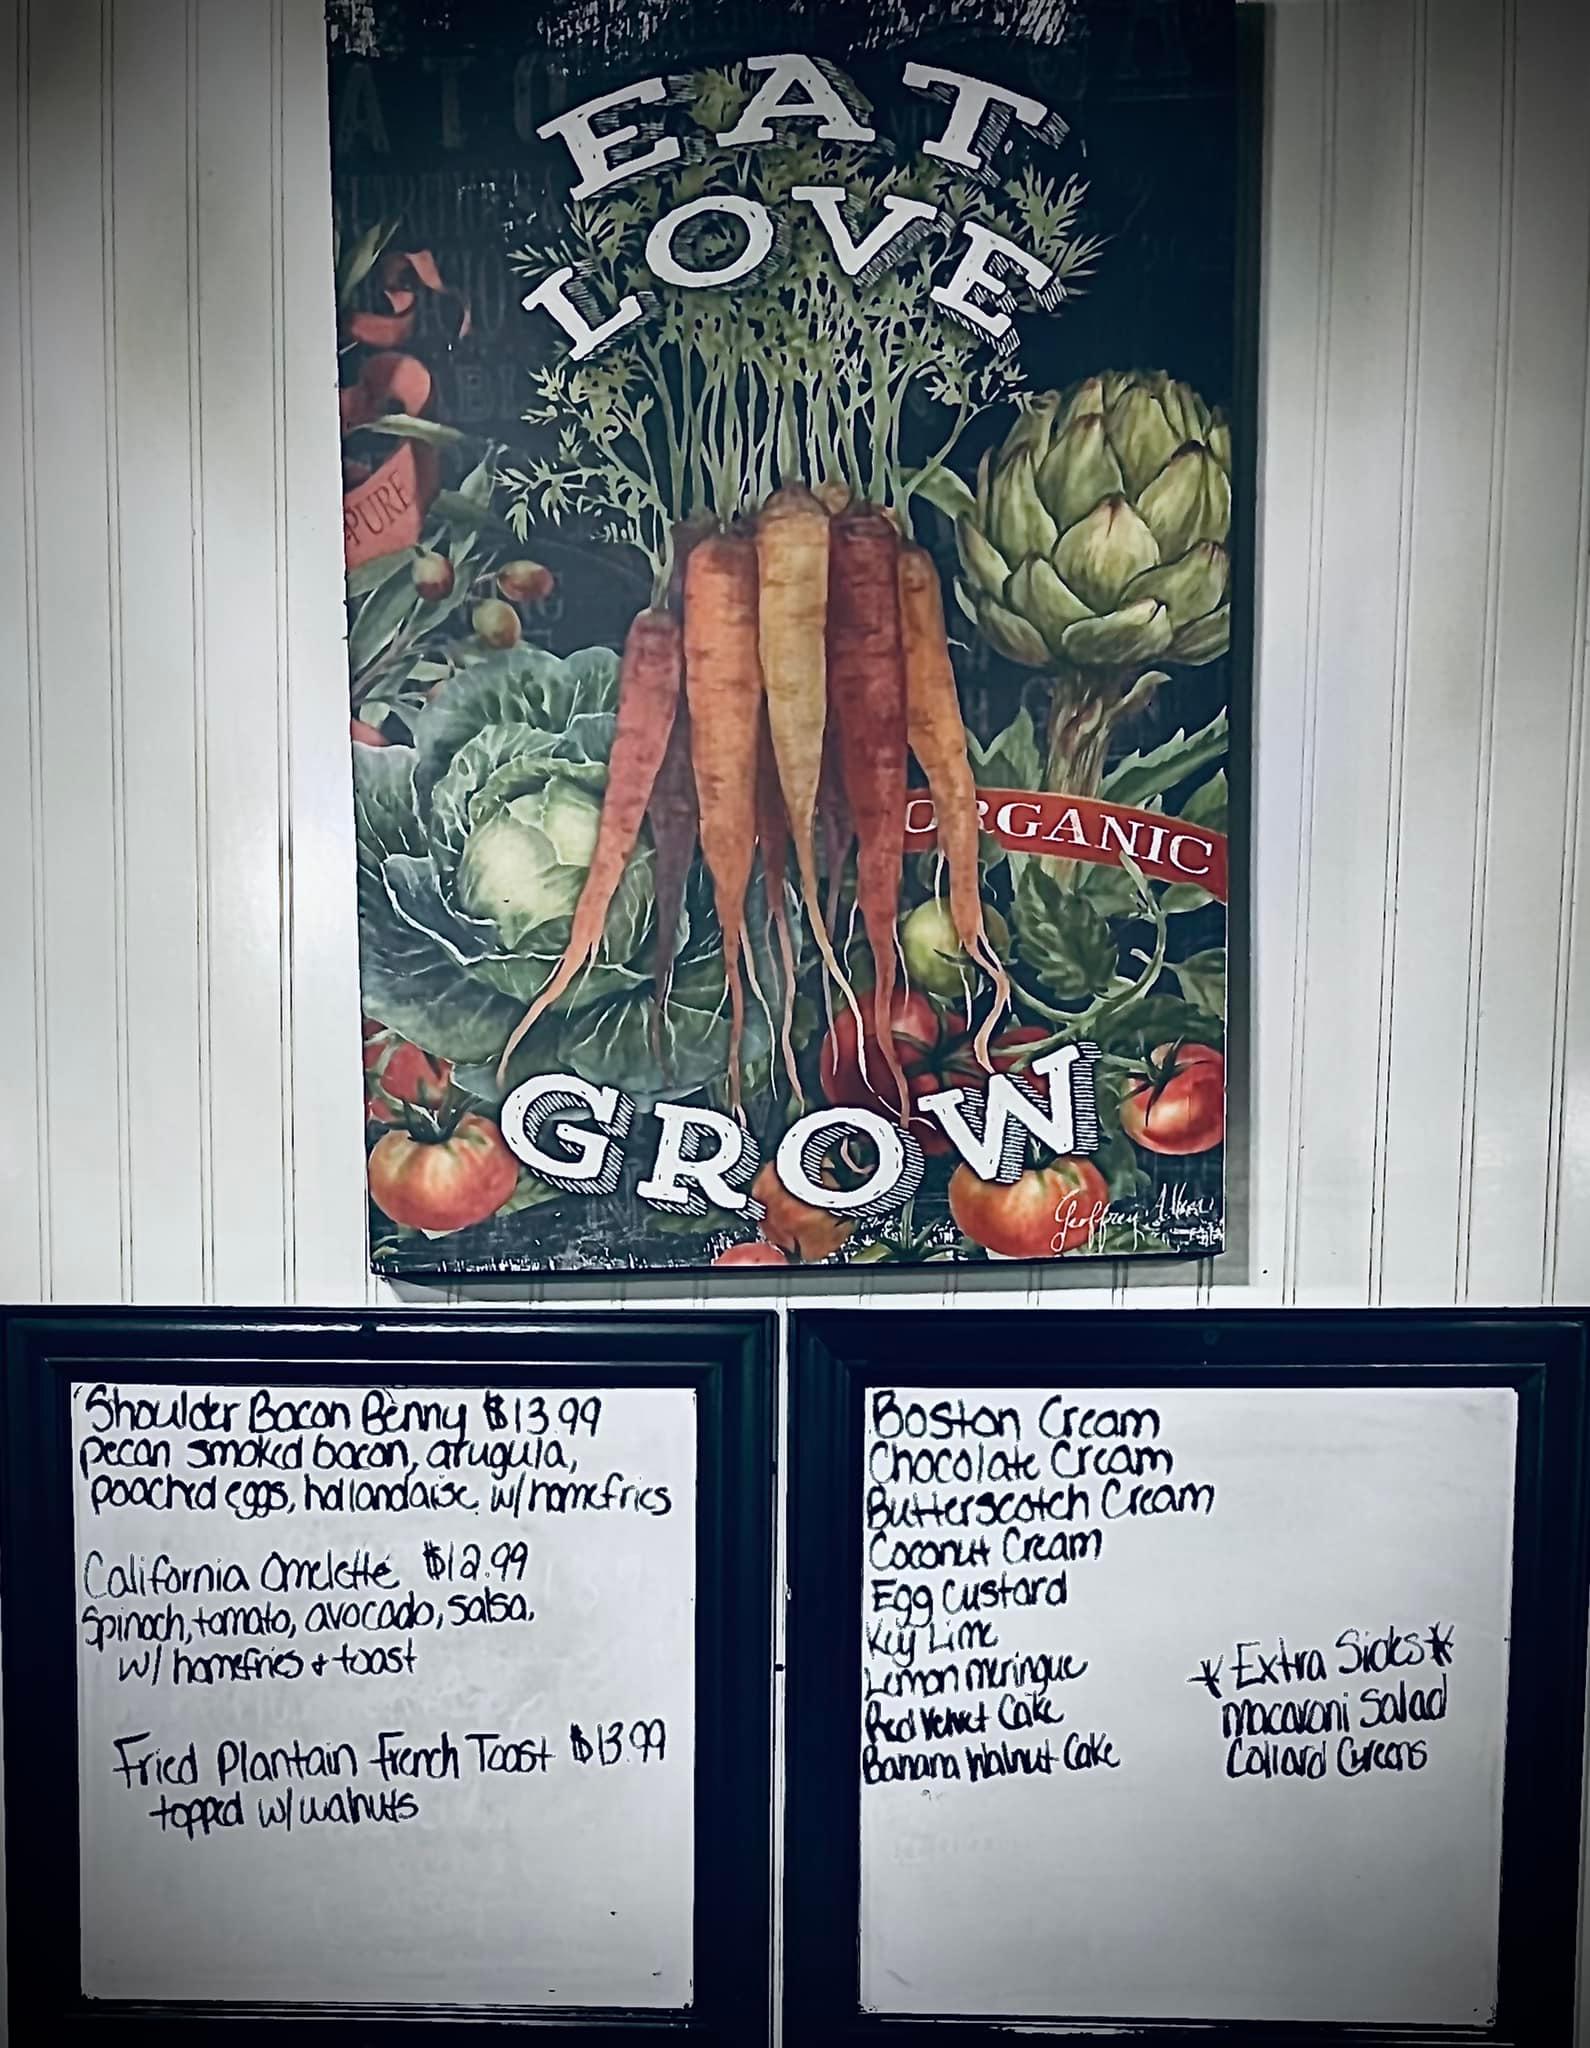 EAT
LOVE
PURE
ORGANIC
GROW
Geoffrey
Shoulder Bacon Benny $13.99
pecan smoked bacon, arugula,
poached eggs, hollandaise w/homefries
California Omelette $12.99
Spinach, tomato, avocado, salsa,
w/ homefries + toast
Fried Plantain French Toast $13.99
topped w/walnuts
Boston Cream
Chocolate Cream
Butterscotch Cream
Coconut Cream
Egg Custard
Key Lime
Lemon Meringue
Red Velvet Cake
Banana Walnut Cake
*Extra Sides*
Macaroni Salad
Collard Greens